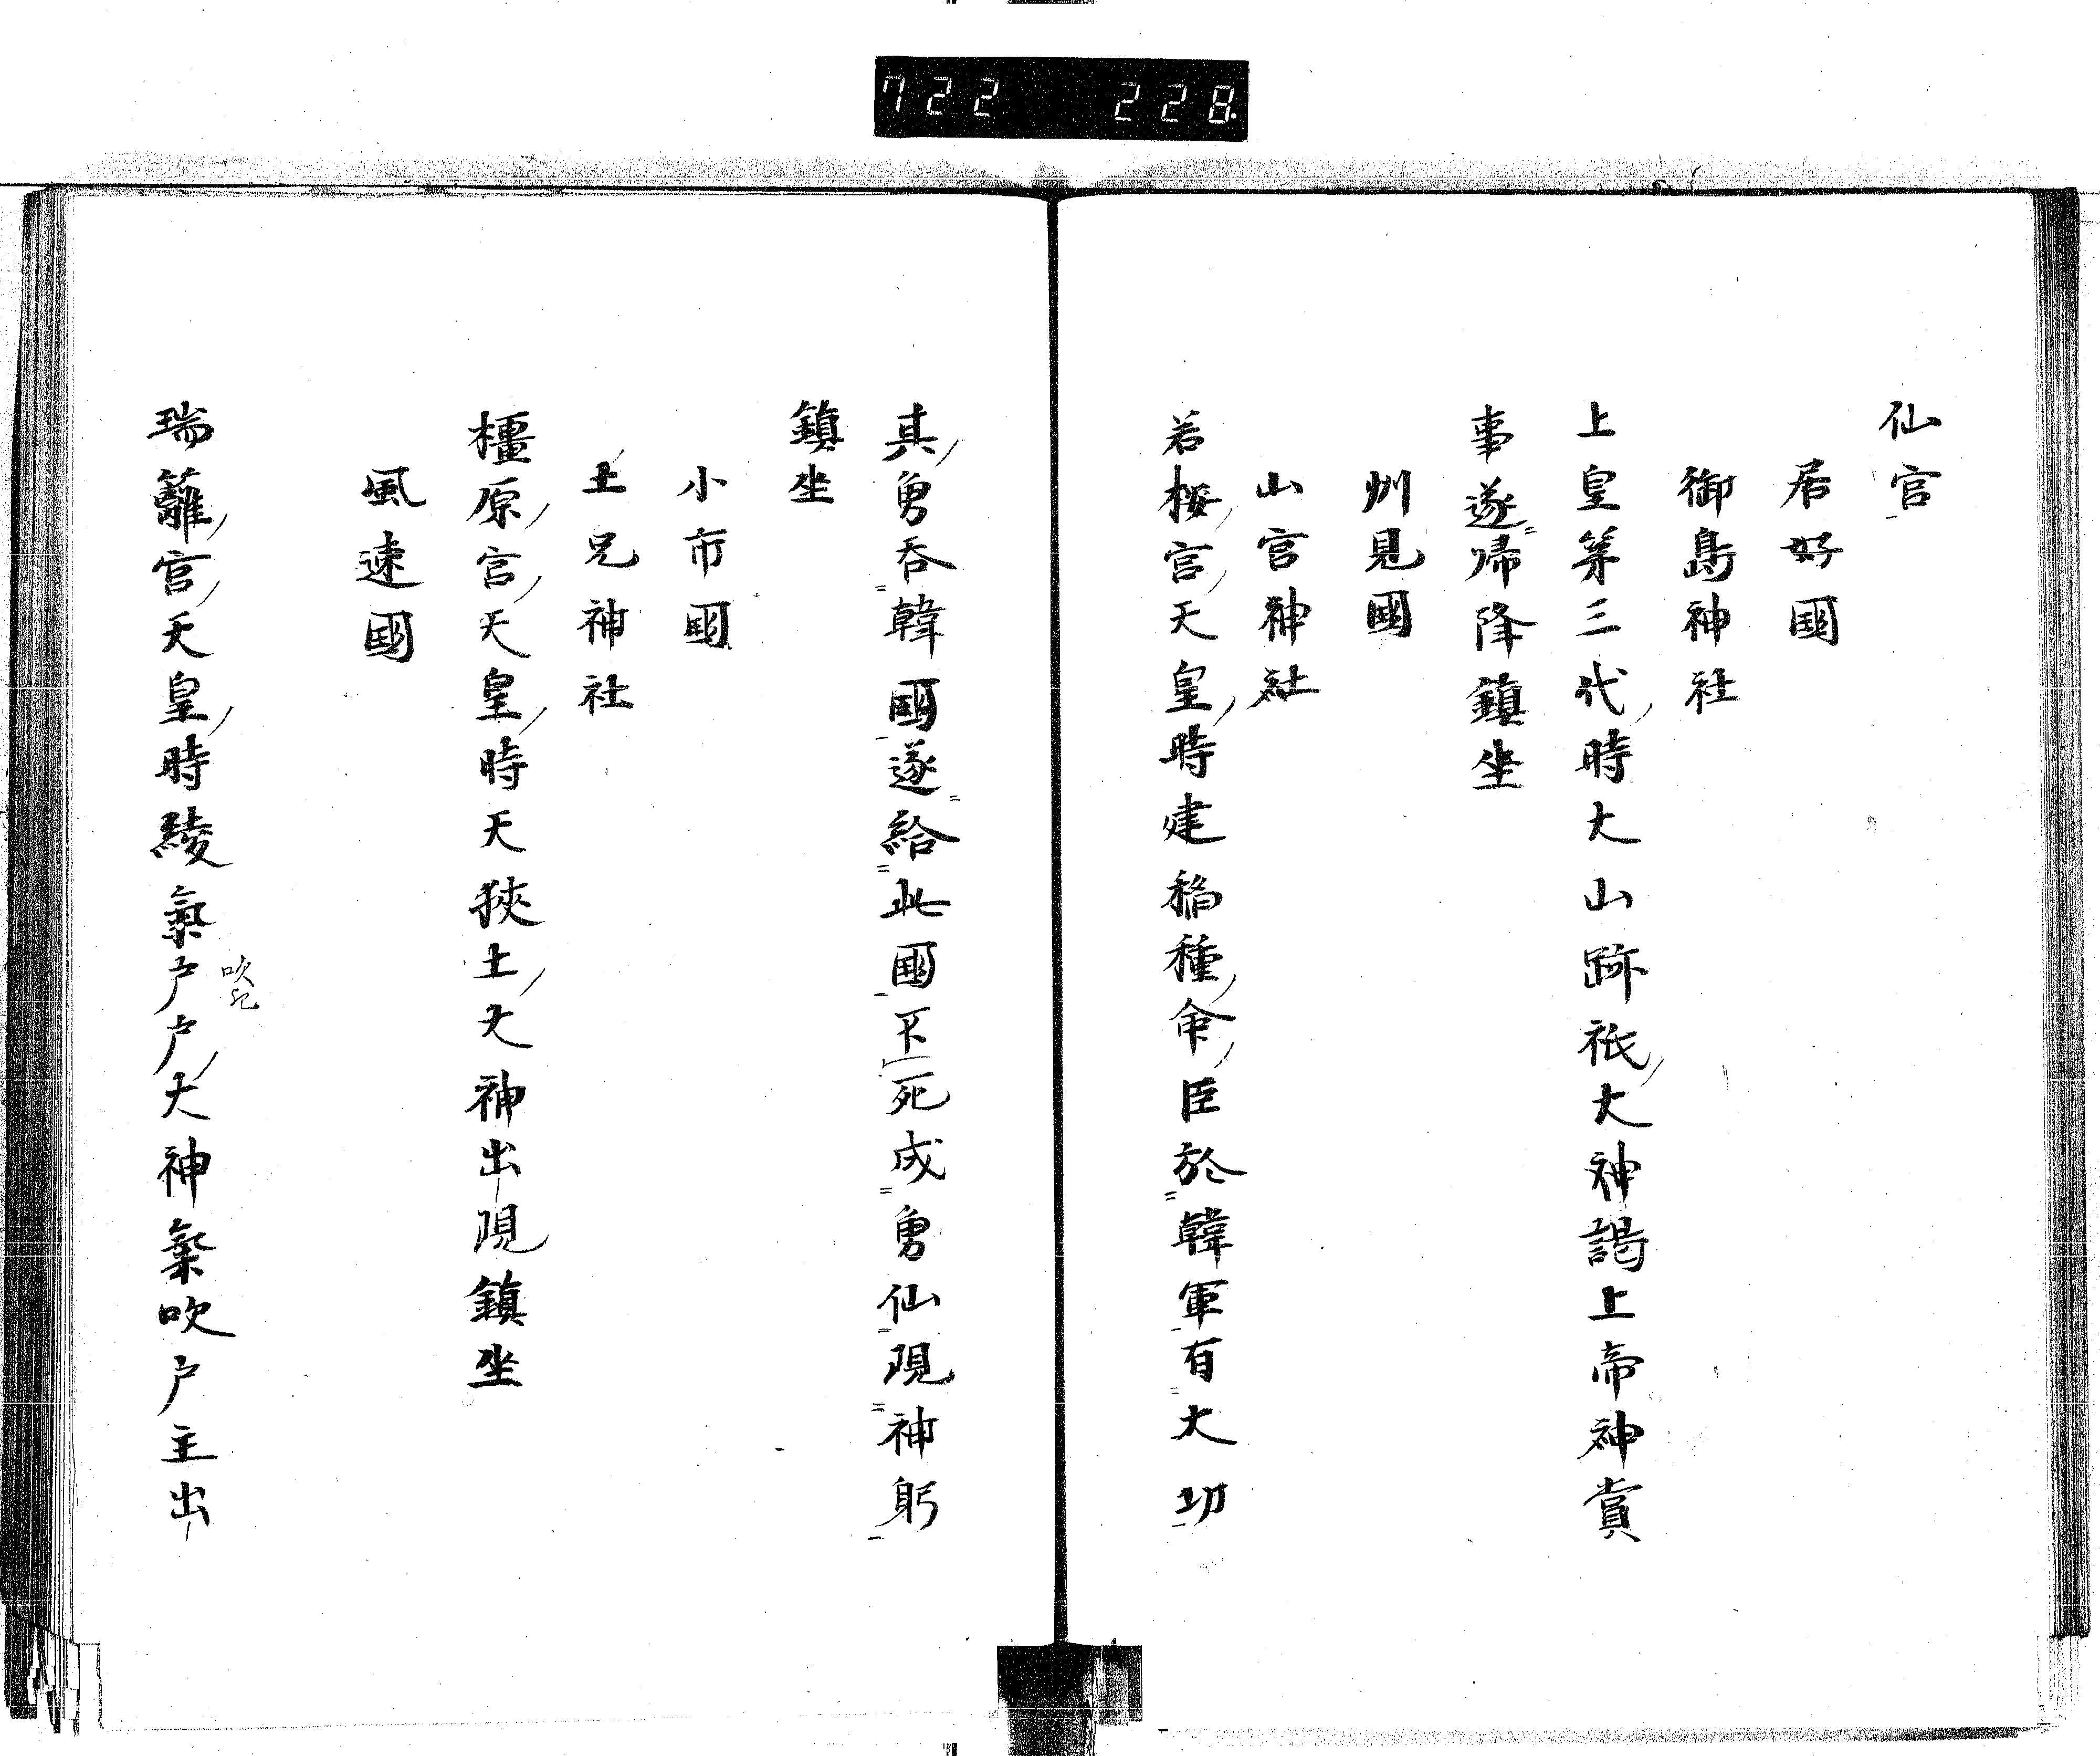 722 228.
仙宮
居好國
御島神社
上皇第三代時大山跡祇大神謁上帝神賞
事遂帰降鎮坐
州見國
山宮神社
若桜宮天皇時建稲種命臣於韓軍有大功
其勇呑韓國遂給此國下死成勇仙現神躬
鎮坐
小市國
土兄神社
橿原宮天皇時天狹土大神出現鎮坐
風速國
瑞籬宮天皇時綾氣戸戸大神氣吹戸主出
吹